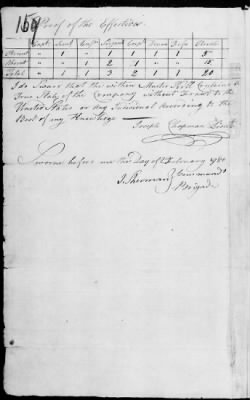 159
Proof of the Effectives
Capt Lieut Ens Serjt Corp Drum Fife Privt
Present 1 1 " 1 1 1 5
Absent " " 1 2 " " 15
Total 1 1 1 3 2 1 1 20
I do Swear that the within Muster Roll Contains a
True State of the Company without Fraud to the
United States or Any Individual According to the
Best of my Knowledge —
Joseph Chapman Lieut
Sworn before me this Day of February 1780
J. Sherman Commandt
Brigade